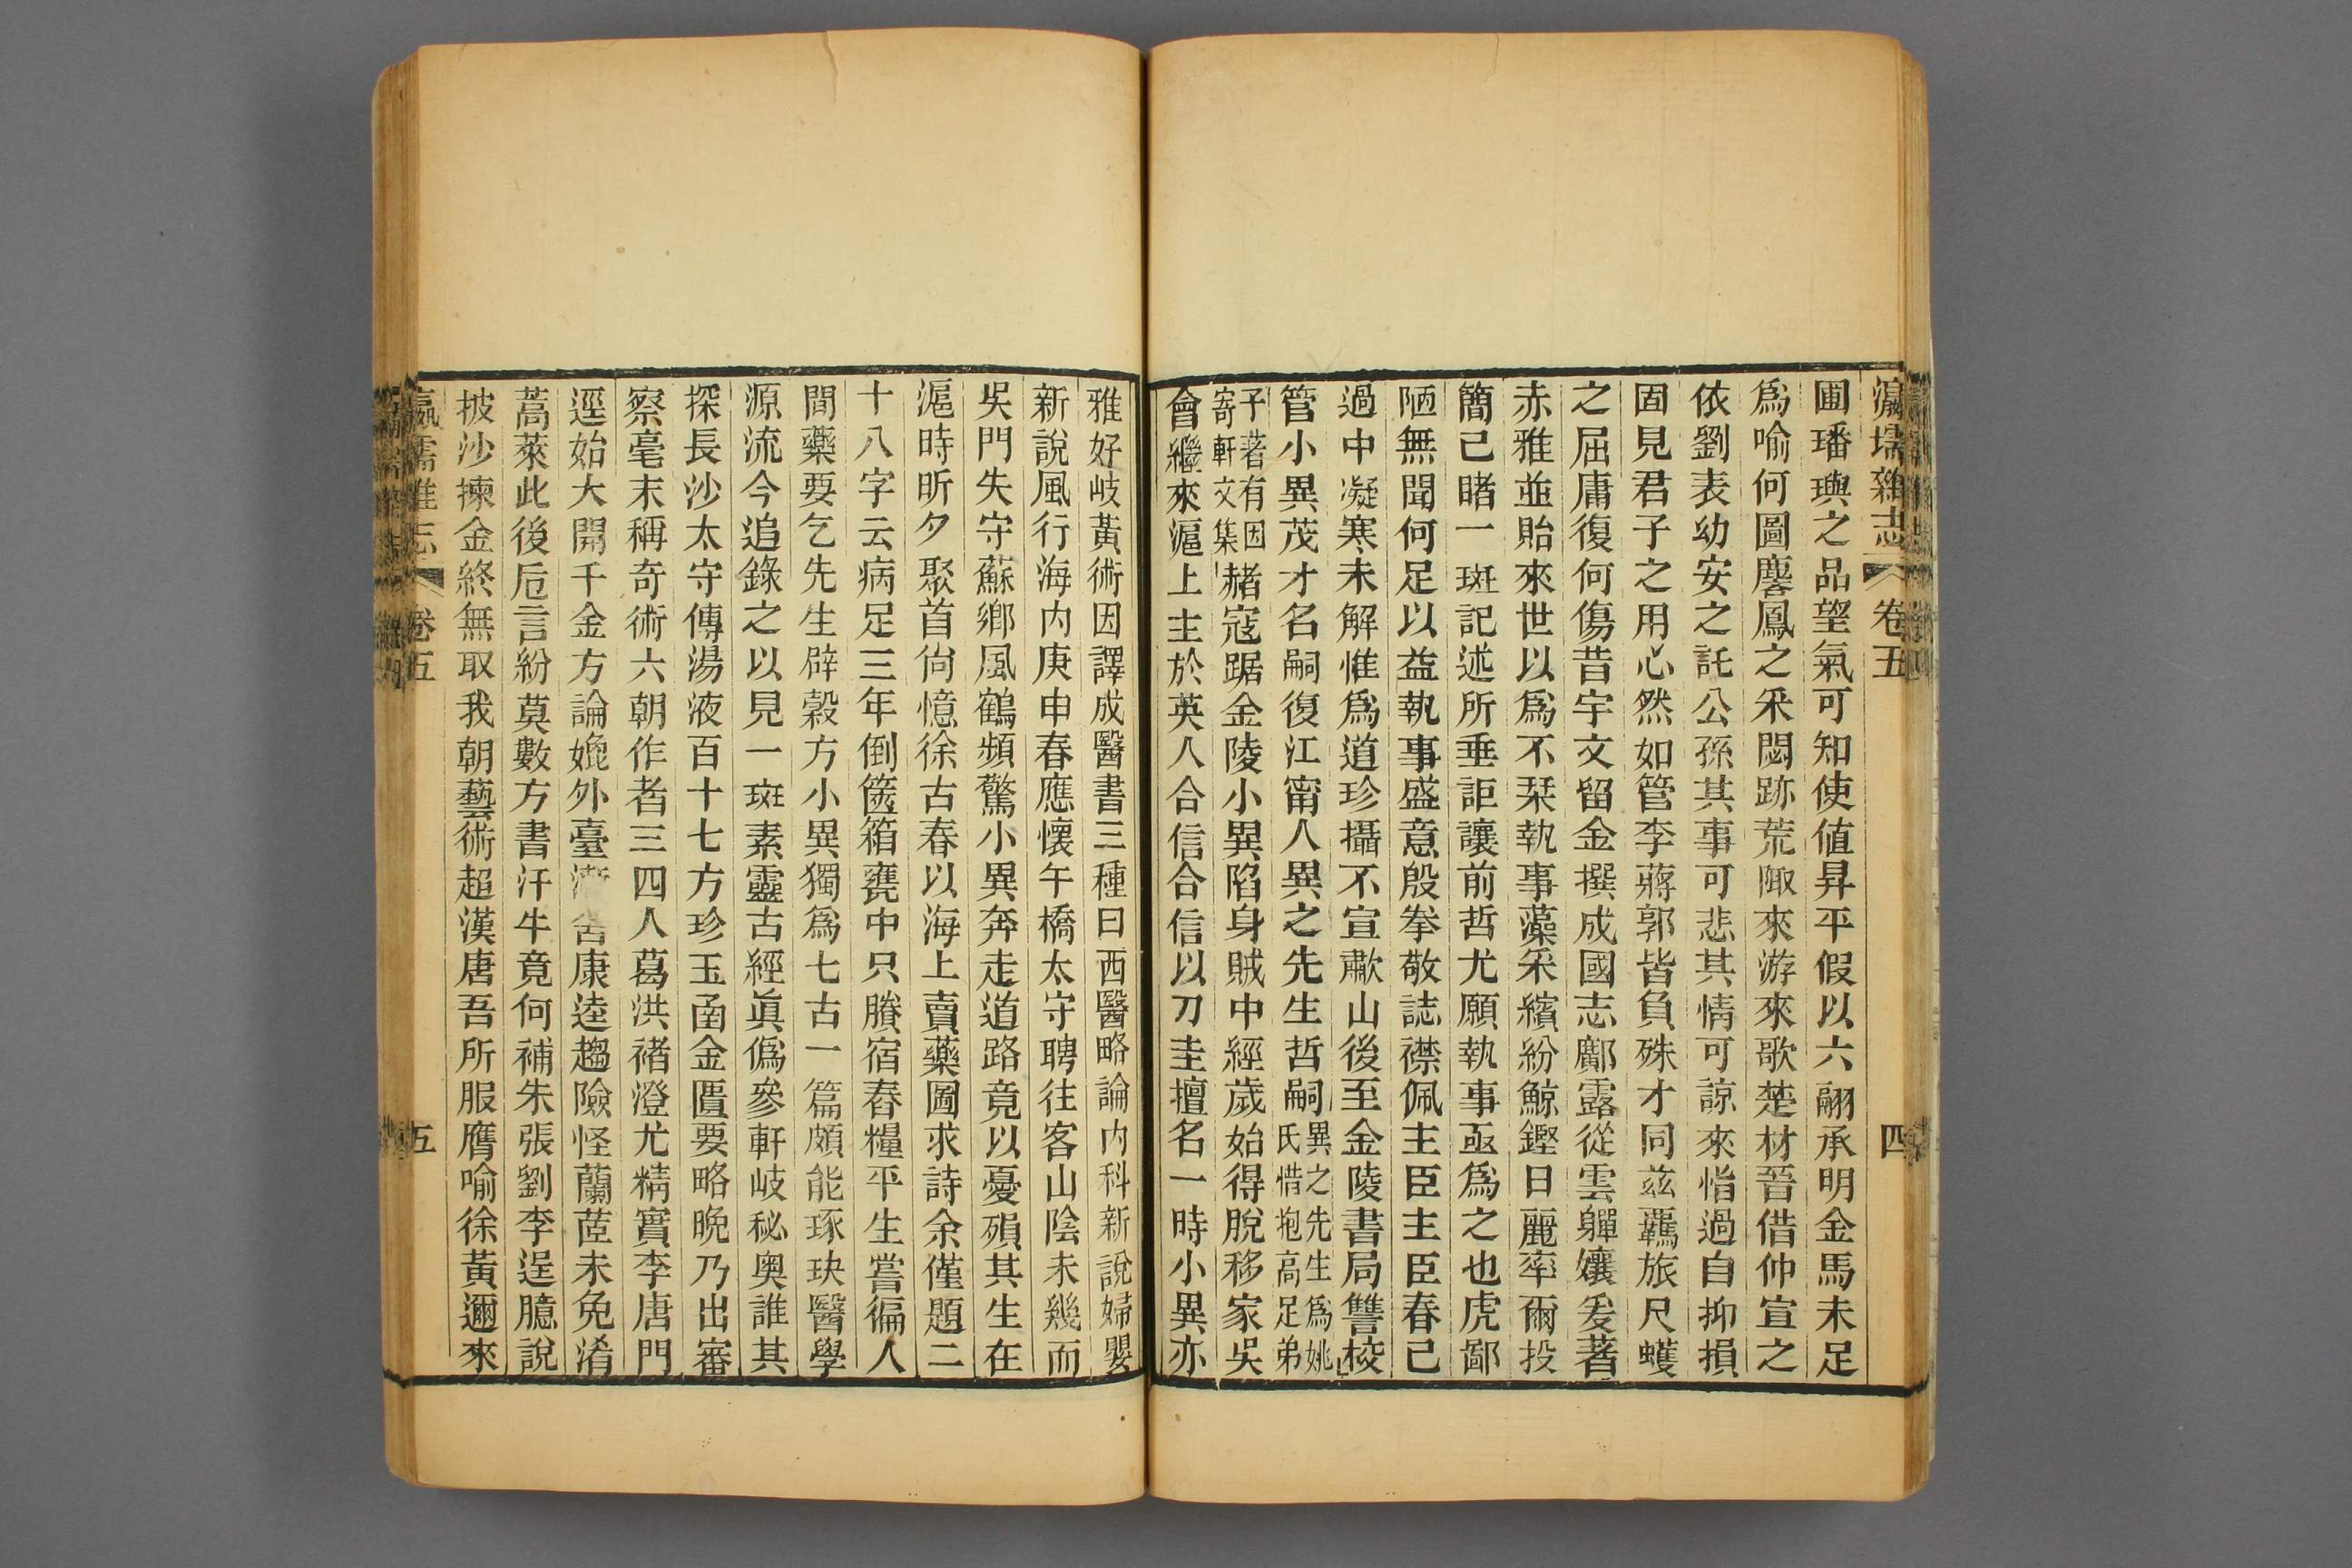 瀛壖雜志 卷五 四
圃璠璵之品望氣可知使値昇平假以六翮承明金馬未足
爲喻何圖麐鳳之采閟跡荒陬來游來歌楚材晉借仲宣之
依劉表幼安之託公孫其事可悲其情可諒來恉過自抑損
固見君子之用心然如管李蔣郭皆負殊才同兹羈旅尺蠖
之屈庸復何傷昔宇文留金撰成國志鄺露從雲嚲孃爰著
赤雅並貽來世以爲不栞執事藻采繽紛鯨鏗日麗率爾投
簡已睹一斑記述所垂詎讓前哲尤願執事亟爲之也虎鄙
陋無聞何足以益執事盛意殷拳敬誌襟佩主臣主臣春已
過中凝寒未解惟爲道珍攝不宣歗山後至金陵書局讐校
管小異茂才名嗣復江甯人異之先生哲嗣異之先生爲姚
氏惜抱高足弟
子著有因
寄軒文集赭寇踞金陵小異陷身賊中經歲始得脫移家吳
會繼來滬上主於英人合信合信以刀圭擅名一時小異亦
雅好岐黃術因譯成醫書三種曰西醫略論内科新說婦嬰
新說風行海内庚申春應懷午橋太守聘往客山陰未幾而
吳門失守蘇鄉風鶴頻驚小異奔走道路竟以憂殞其生在
滬時昕夕聚首尙憶徐古春以海上賣藥圖求詩余僅題二
十八字云病足三年倒篋箱甕中只賸宿舂糧平生嘗徧人
間藥要乞先生辟穀方小異獨爲七古一篇頗能琢玦醫學
源流今追錄之以見一斑素靈古經眞僞參軒岐秘奧誰其
探長沙太守傳湯液百十七方珍玉函金匱要略晚乃出審
察毫末稱奇術六朝作者三四人葛洪褚澄尤精實李唐門
逕始大開千金方論媲外臺康逵趨險怪蘭茝未免淆
蒿萊此後巵言紛莫數方書汗牛竟何補朱張劉李逞臆說
披沙揀金終無取我朝藝術超漢唐吾所服膺喻徐黃邇來
瀛壖雜志 卷五 五